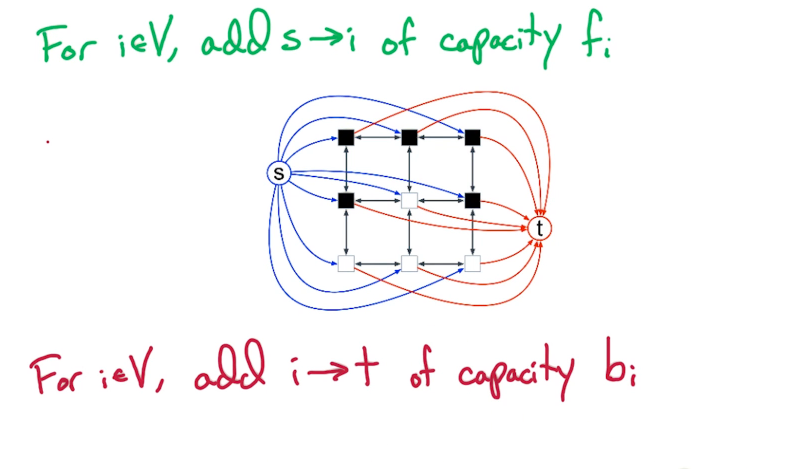 For i∈V, add s→i of capacity fi
s
t
For i∈V, add i→t of capacity bi